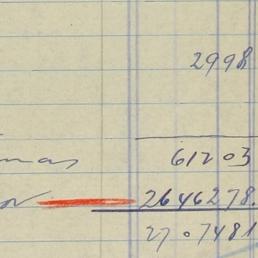 2998
61203
2646278.
2707481